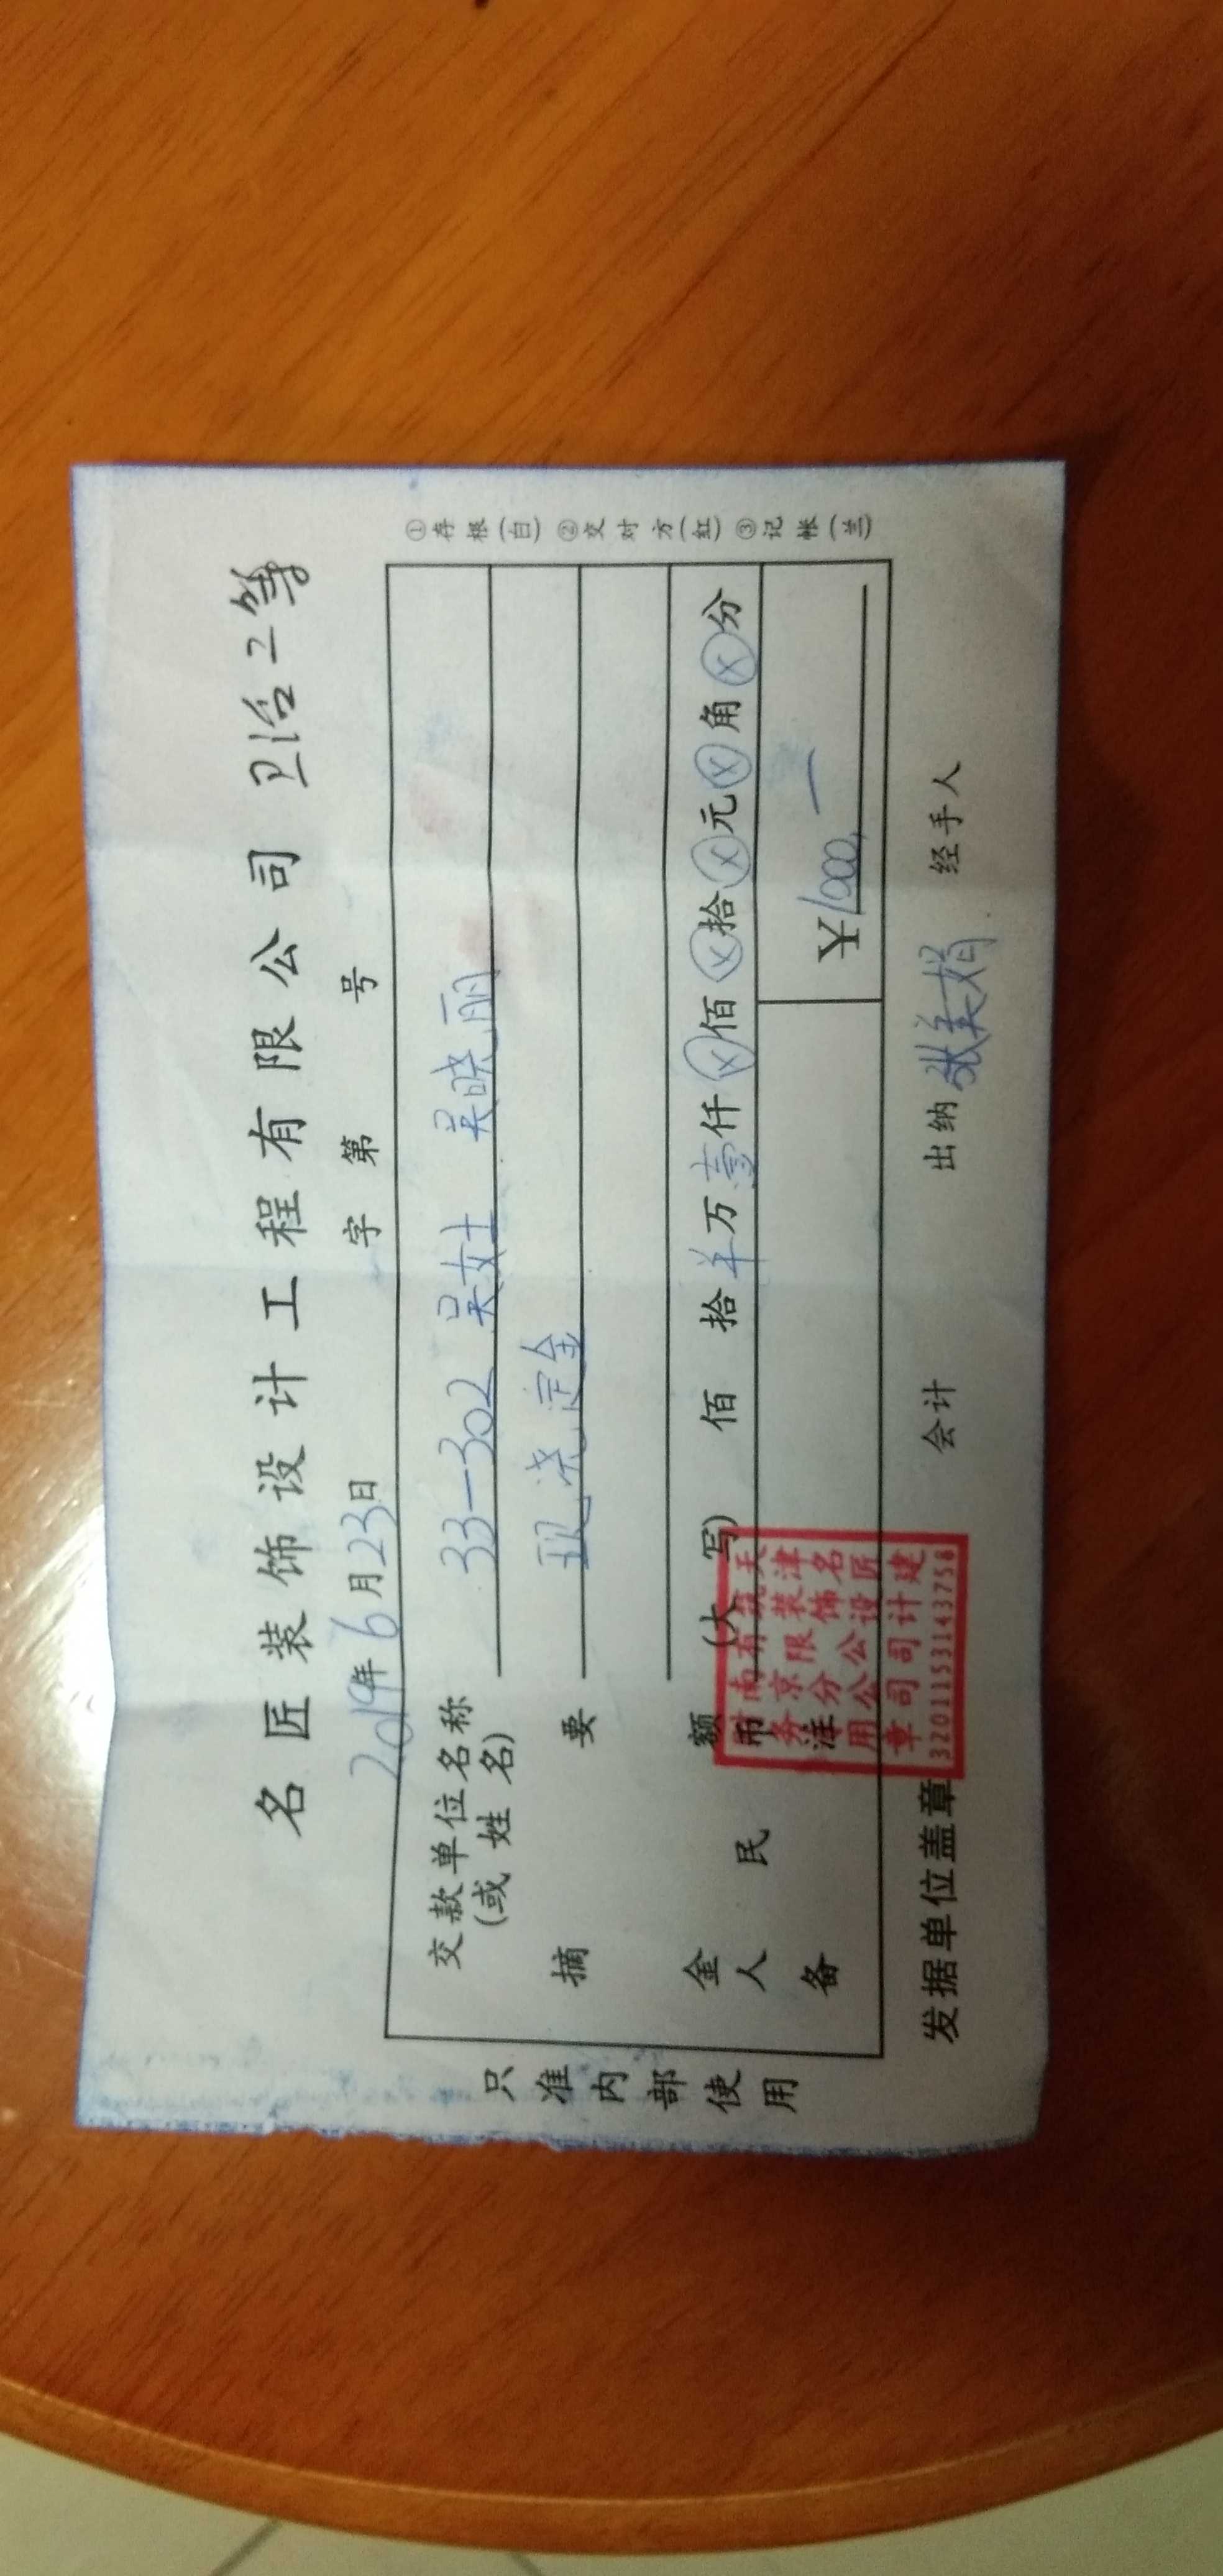 名匠装饰设计工程有限公司
2019年6月23日 字第 号
交款单位名称
(或姓名)
33-302 吴女士 吴晓丽
摘要
现浇定金
金额(大写)
人民币
佰 拾 万 壹仟 ⊗佰 ⊗拾 ⊗元 ⊗角 ⊗分
备注
¥1000,一
发据单位盖章 会计 出纳 张美娟 经手人
只准内部使用
①存根(白) ②交对方(红) ③记帐(兰)
天津名匠建
筑装饰设计
有限公司
南京分公司
财务专用章
3201153143758